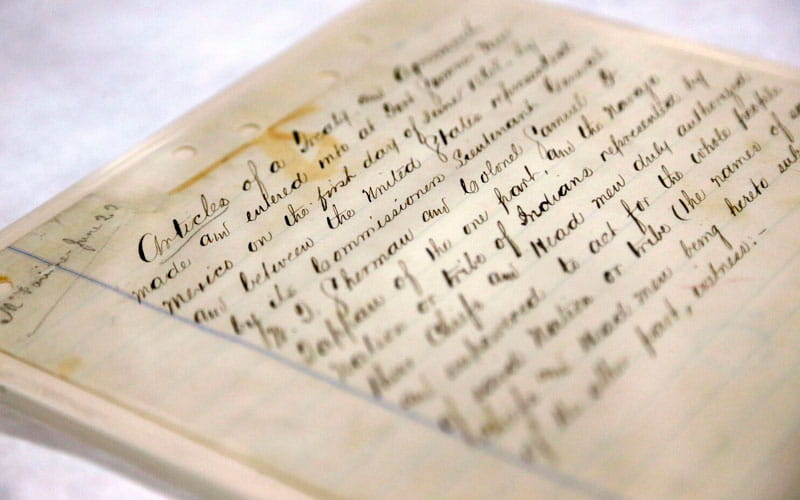 Articles of a Treaty and Agreement
made and entered into at Fort Sumner New
Mexico on the first day of June 1868 by
and between the United States represented
by its Commissioners Lieutenant General
W. T. Sherman and Colonel Samuel F.
Tappan of the one part and the Navajo
Nation or tribe of Indians represented by
their Chiefs and Head men duly authorized
and empowered to act for the whole people
of said Nation or tribe (the names of
Chiefs and Head men being hereto sub
of the other part, witness:-
June 29